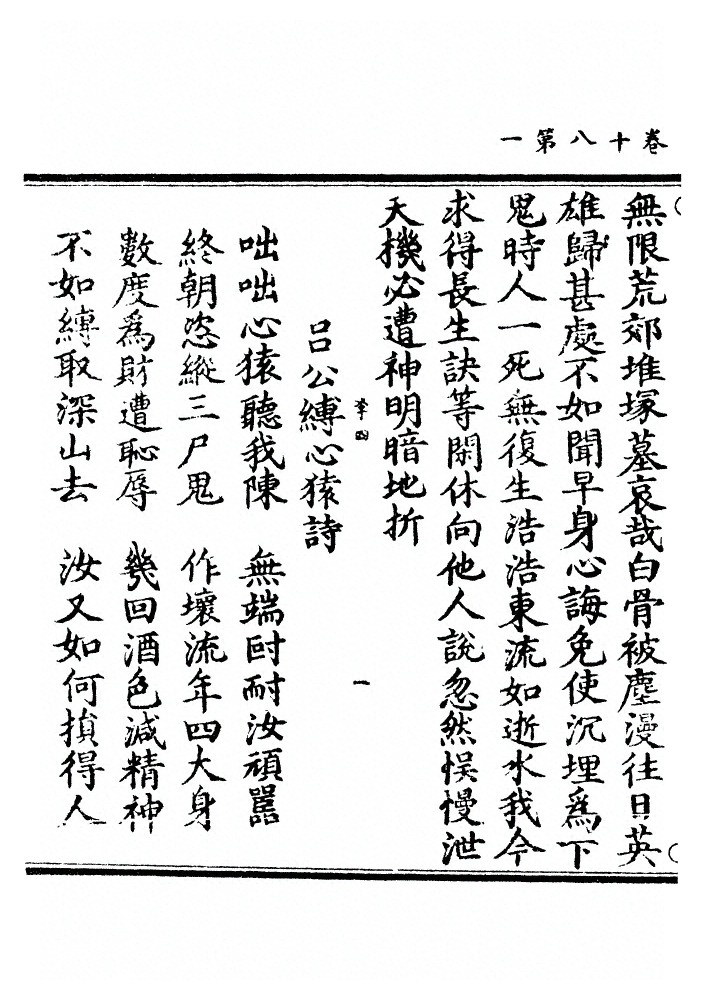 卷十八第一
無限荒郊堆塚墓哀哉白骨被塵漫往日英
雄歸甚處不如聞早身心誨免使沉埋爲下
鬼時人一死無復生浩浩東流如逝水我今
求得長生訣等閑休向他人說忽然悞慢泄
天機必遭神明暗地折
李四 一
吕公縛心猿詩
咄咄心猿聽我陳 無端尀耐汝頑嚚
終朝恣縱三尸鬼 作壞流年四大身
數度爲財遭恥辱 幾回酒色減精神
不如縛取深山去 汝又如何損得人